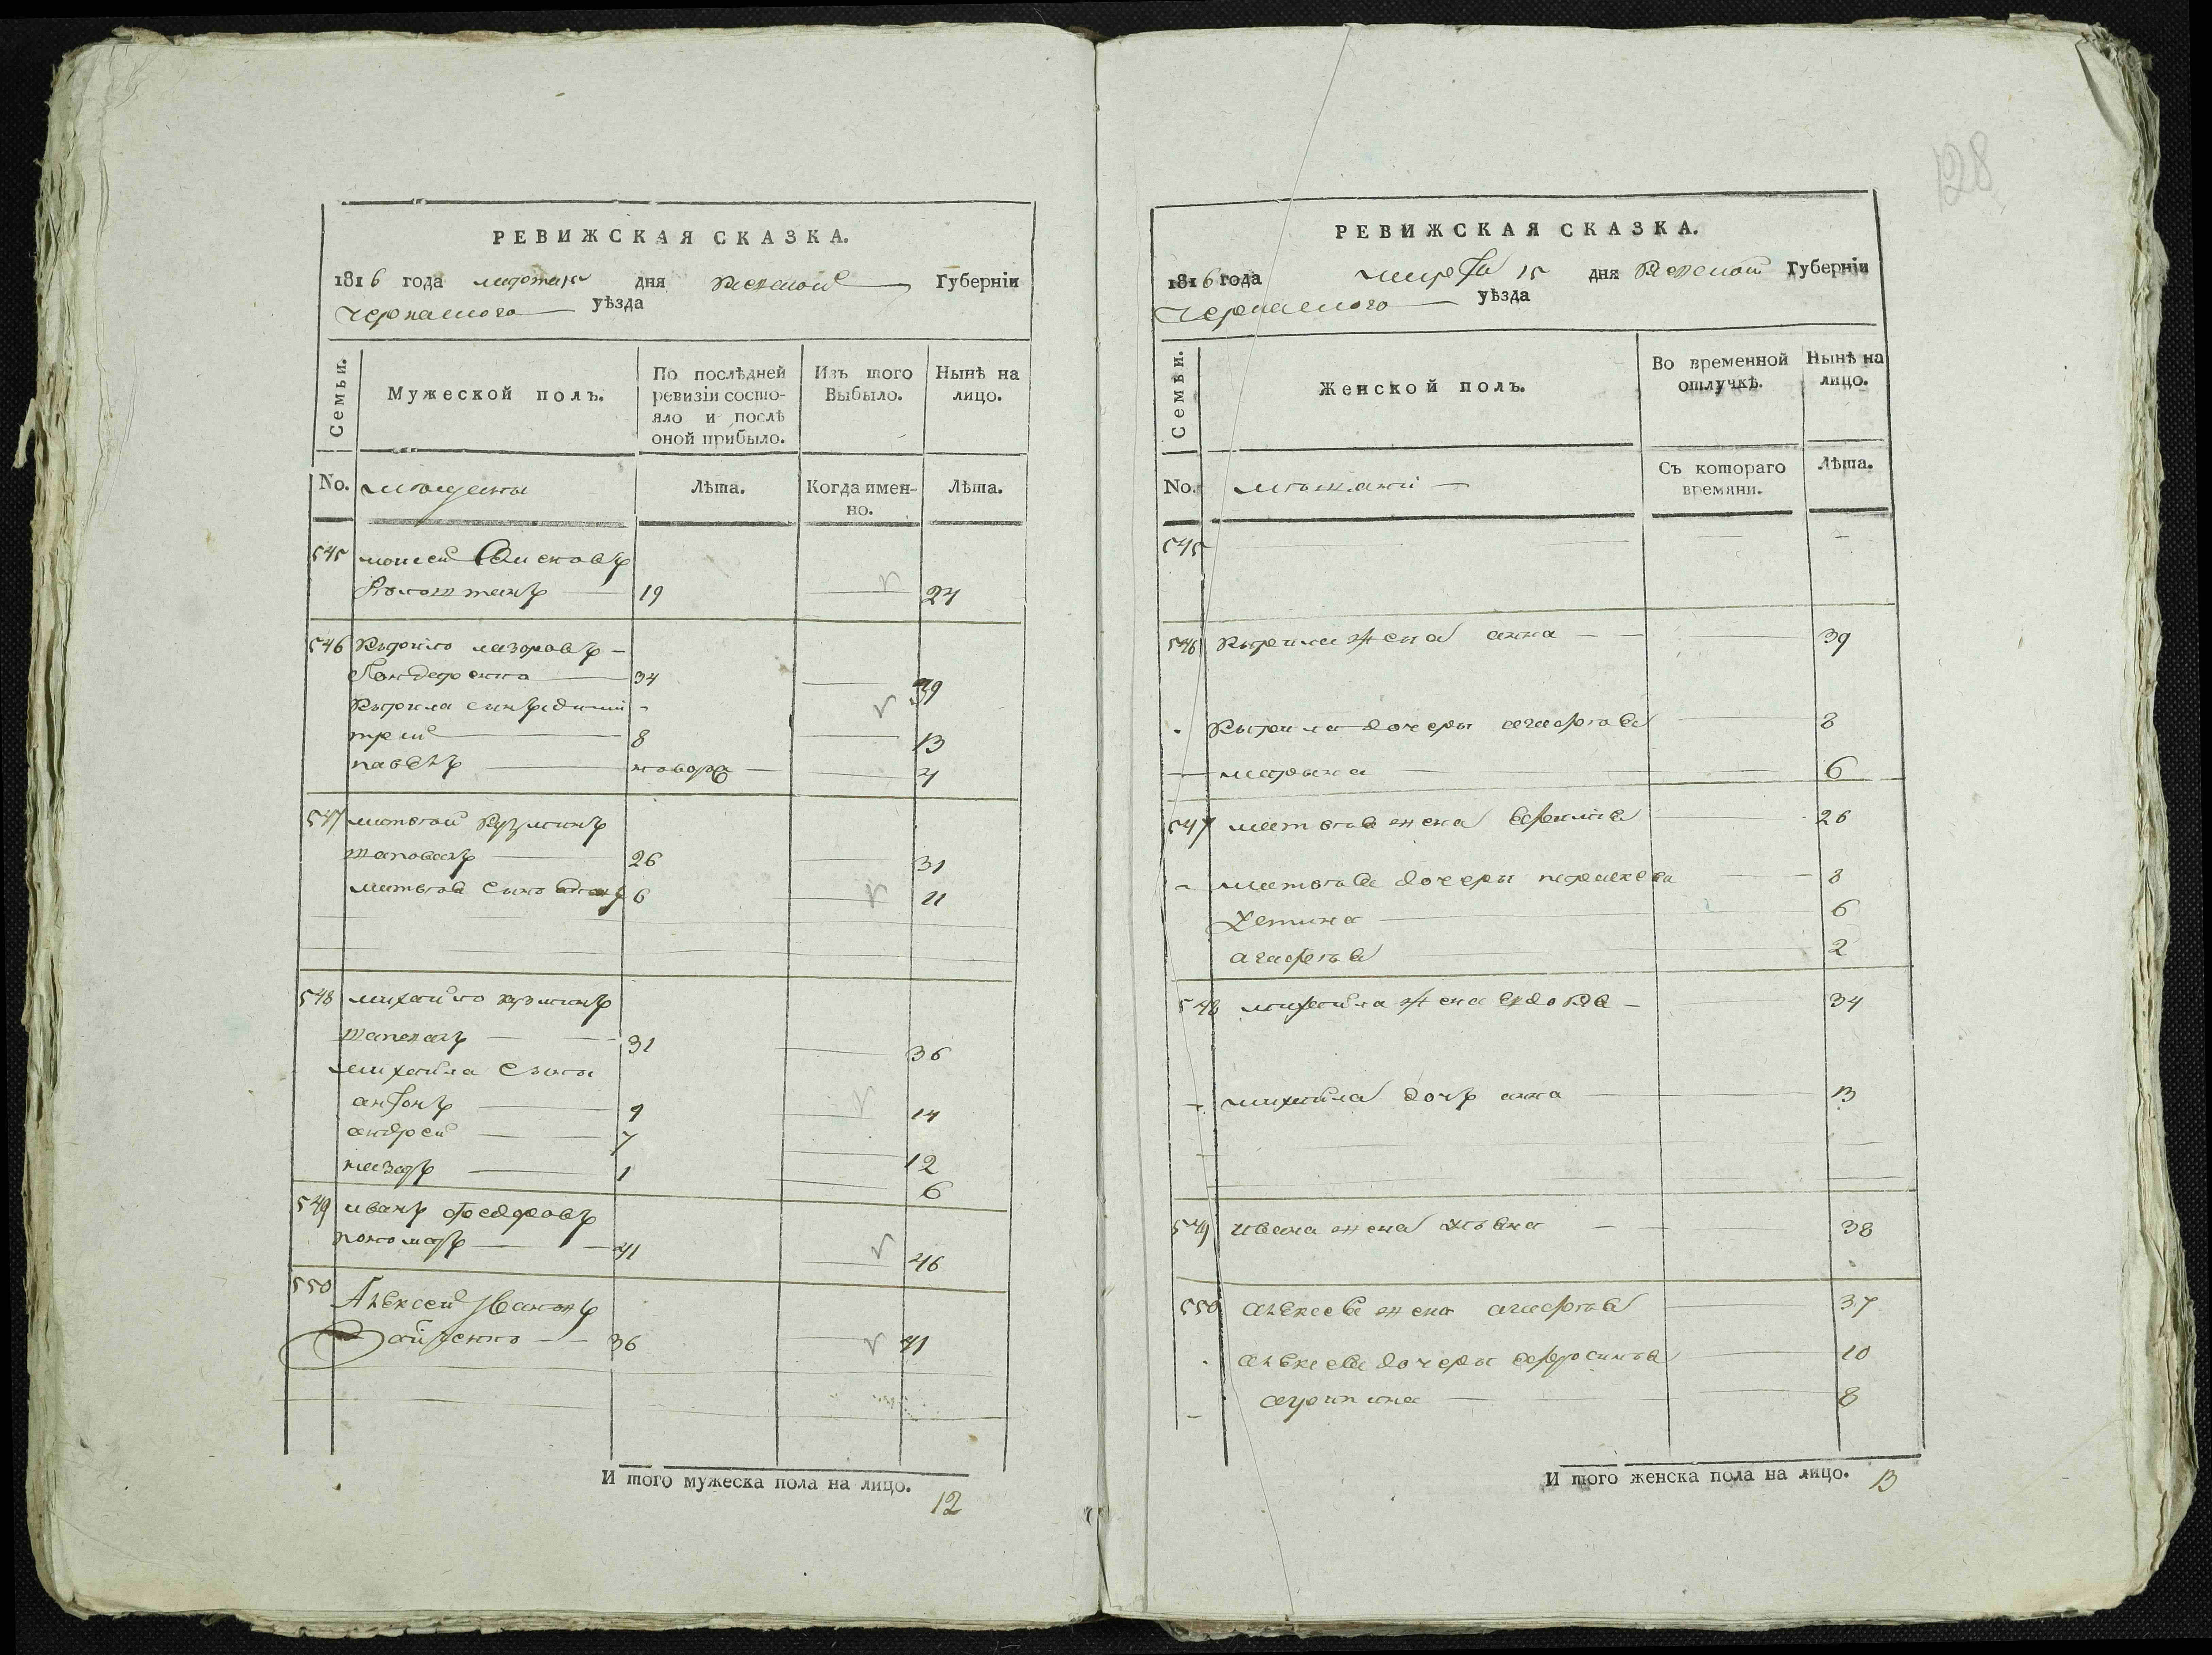 РЕВИЖСКАЯ СКАЗКА.
1816 года марта 15 дня Киевской Губернїи
Черкаского уѣзда
Семьи.
Мужеской полъ.
По послѣдней ревизїи состояло и послѣ оной прибыло.
Изъ того Выбыло.
Нынѣ на лицо.
No. мещаны
Лѣта.
Когда именно.
Лѣта.
545 моисей
19 24
546 Кирило лазоровъ
Бондаренко 34 39
Кирила сын
8 13
павелъ новорож 4
547 матвей Кузминъ
шаповалъ 26 31
матвея сынъ 6 11
548 михайло кузминъ
шаповалъ 31 36
михайла сыны
антонъ 9 14
андрей 7 12
назаръ 1 6
549 иванъ феодоровъ
пономаръ 41 46
550 Алексей Ивановъ
Зайченко 36 41
И того мужеска пола на лицо. 12
128
РЕВИЖСКАЯ СКАЗКА.
1816 года марта 15 дня Киевской Губернїи
Черкаского уѣзда
Семьи.
Женской полъ.
Во временной отлучкѣ.
Нынѣ на лицо.
No. мѣщанки
Съ котораго времяни.
Лѣта.
545
546 Кирила жена анна 39
Кирила дочеры агафия 8
марина 6
547 матвея жена ефимия 26
матвея дочеры параскева 8
6
агафия 2
548 михайла жена евдокия 34
михайла дочь анна 13
549 ивана жена 38
550 алексея жена агафия 37
алексея дочеры ефросиния 10
агрипина 8
И того женска пола на лицо. 13